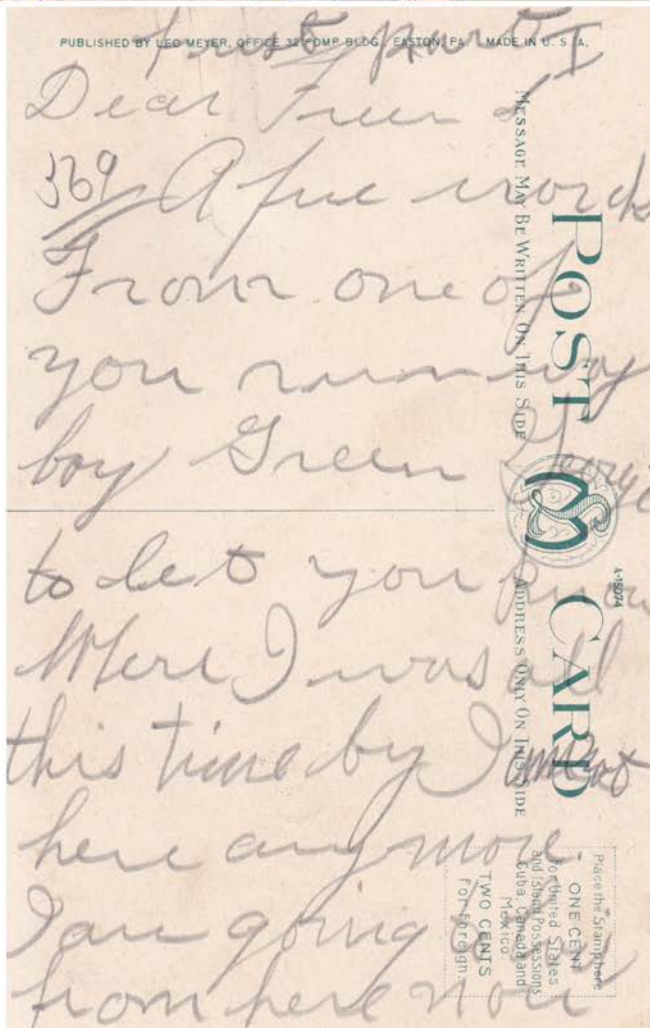 first part I
PUBLISHED BY LEO MEYER, OFFICE 32 POMP BLDG., EASTON, PA. MADE IN U. S. A,
Dear Frien d
569
A fue words
From one of
you runway
boy Green
to let you know
Where I was all
this time by I
here any more.
I am going
from here now
POST CARD
MESSAGE MAY BE WRITTEN ON THIS SIDE
ADDRESS ONLY ON THIS SIDE
A-15074
Place the Stamp here
ONE CENT
For United States
and Island Possessions
Cuba, Canada and
Mexico.
TWO CENTS
For Foreign.